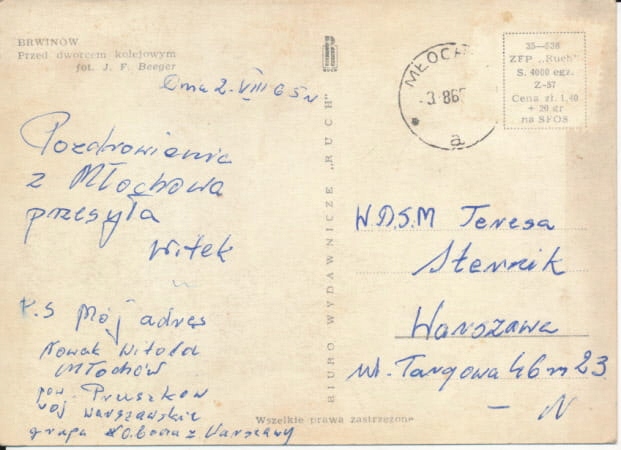 BRWINÓW
Przed dworcem kolejowym
fot. J. F. Beeger
Dnia 2. VIII 65 r
Pozdrowienia
z Młochowa
przesyła
Witek
P.S Mój adres
Nowak Witold
Młochów
pow. Pruszków
woj warszawskie
grupa z Warszawy
BIURO WYDAWNICZE „RUCH"
Wszelkie prawa zastrzeżone
MŁOCH
-3.8.6
a
35—538
ZFP „Ruch"
S. 4000 egz.
Z-57
Cena zł. 1,40
+ 20 gr
na SFOS
W.D.S.M Teresa
Warszawa
ul. Targowa 46 m 23
— N